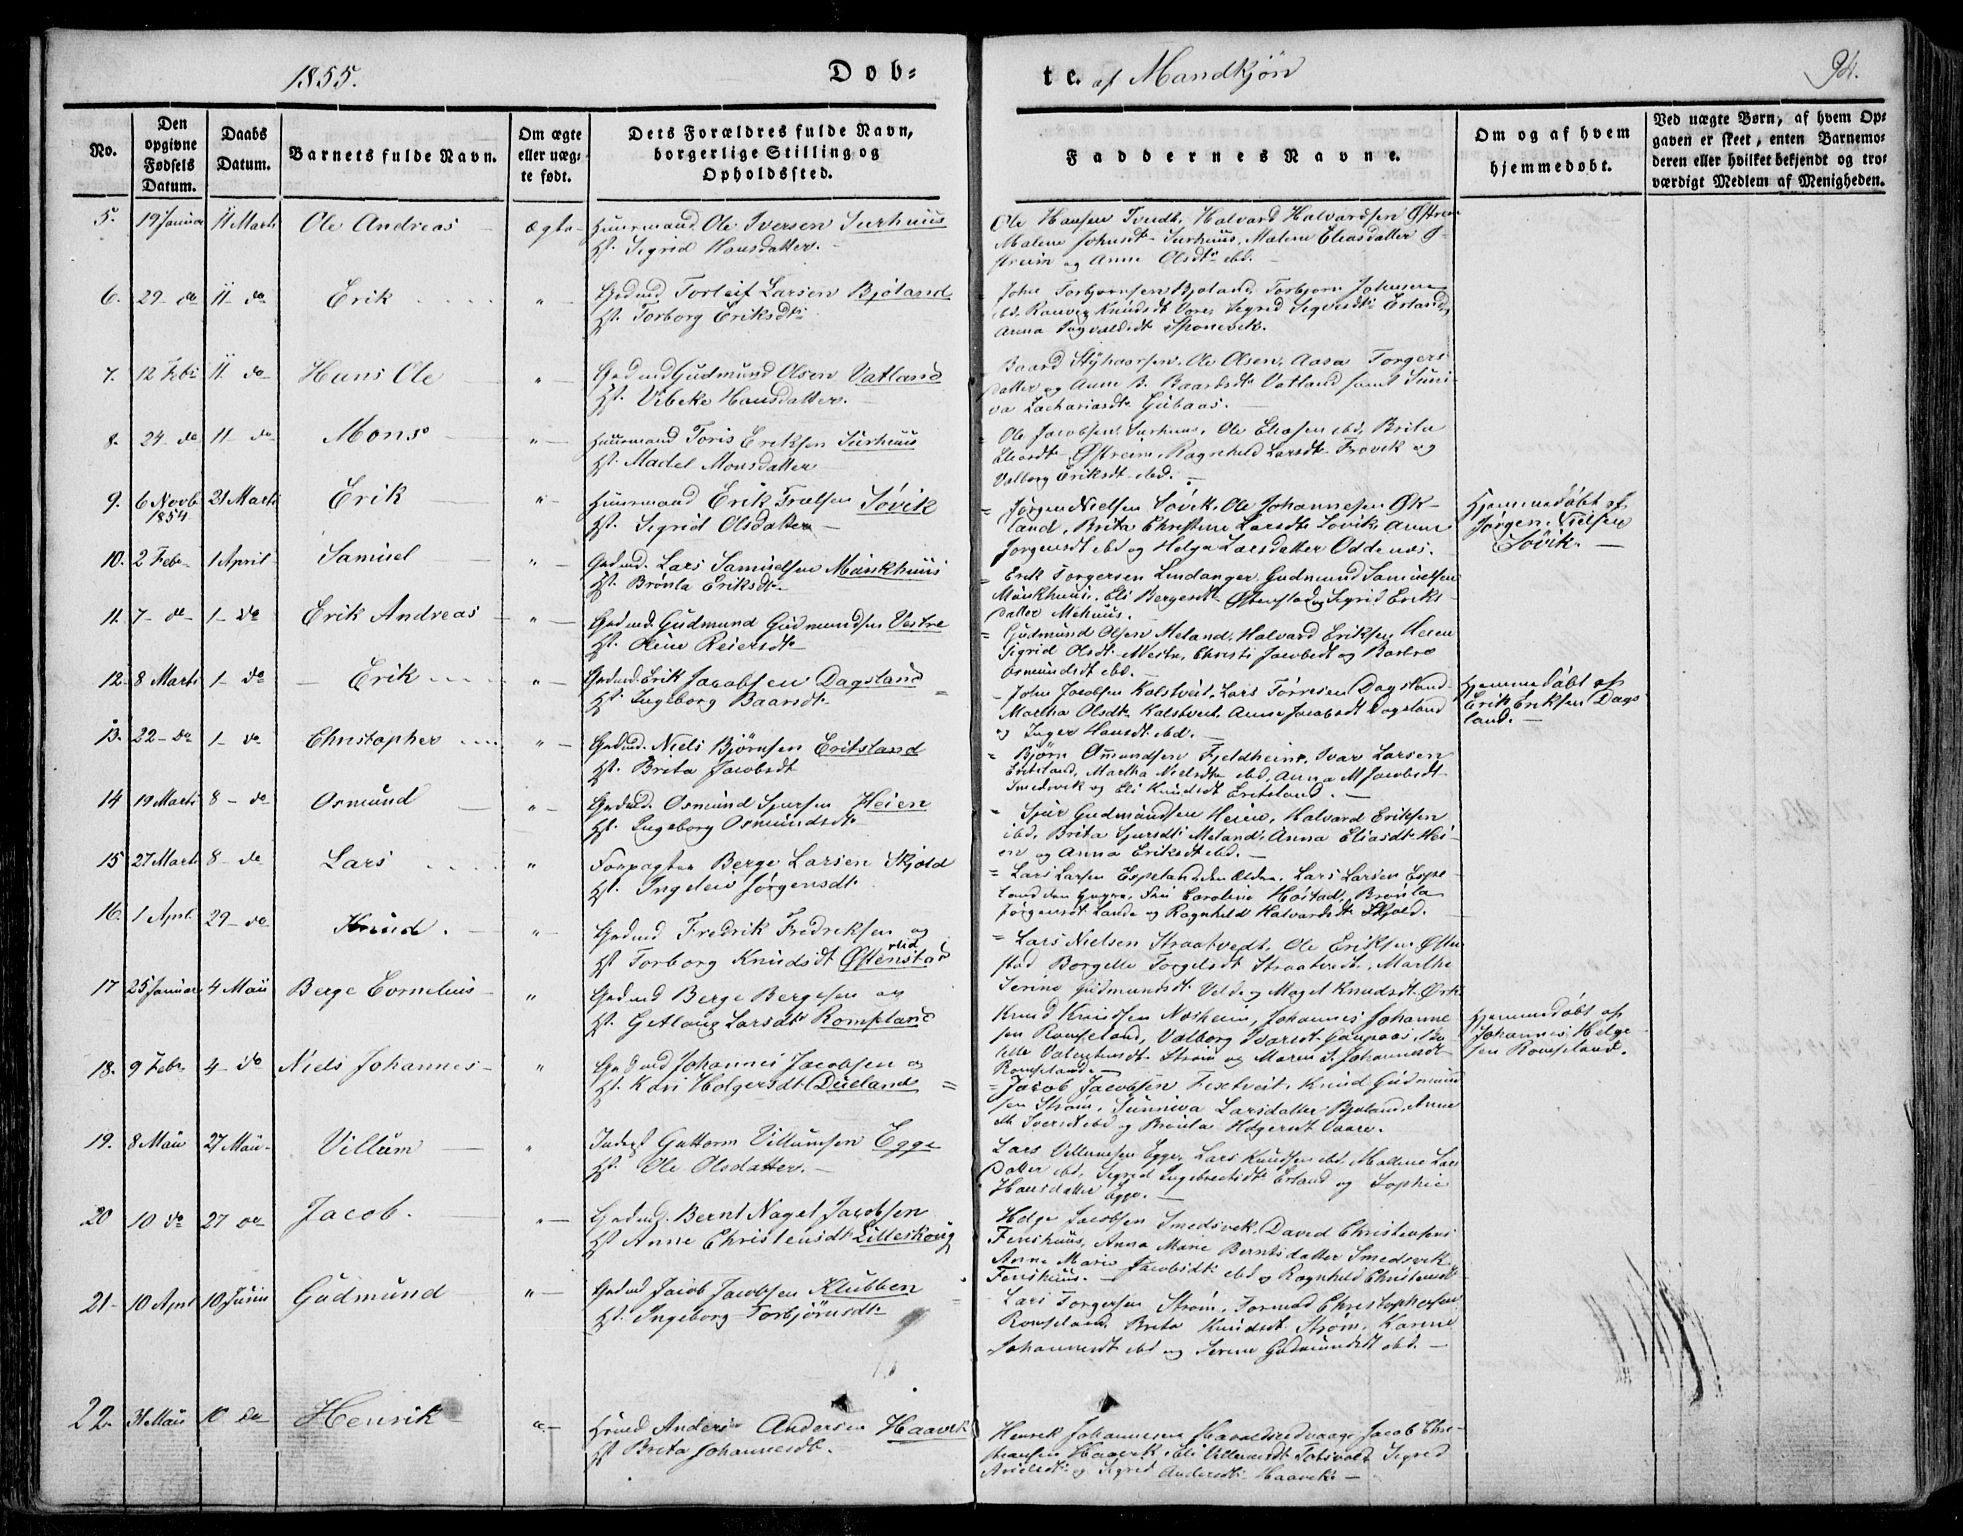 1855.
Døb-
te. af Mandkjøn
94.
No.
Den opgivne Fødsels Datum.
Daabs Datum.
Barnets fulde Navn.
Om ægte eller uægte født.
Dets Forældres fulde Navn, borgerlige Stilling og Opholdssted.
Faddernes Navne.
Om og af hvem hjemmedøbt.
Ved uægte Børn, af hvem Opgaven er skeet, enten Barnemoderen eller hvilket bekjendt og troværdigt Medlem af Menigheden.
5. 19 Januar 11 Marts Ole Andreas ægte Huusmand Ole Iversen Surhuus
H. Sigrid Hansdatter.
Ole Hansen Tvedt, Halvard Halvardsen Østreim
Malene Johnsdt Surhuus, Malene Eliasdatter Ø-
streim og Anne Olsdt ibd.
6. 29 do 11 do Erik " Gdmd Torleif Larsen Bjoland
H. Torborg Eriksdt
John Torbjørnsen Bjoland, Torbjørn Johnsen
ibd. Knudsdt Vore, Sigrid Erland,
Anna Ingvaldsdt
7. 12 Feb 11 do Hans Ole " Gdmd Gudmund Olsen Vatland
H. Vibeke Hansdatter.
Baard Ole Olsen, Aasa Torgers
datter og Anne B. Baardsdt Vatland samt Suni-
va Zachariasdt
8. 24 do 11 do Mons " Huusmand Toris Eriksen Surhuus
H. Madel Monsdatter
Ole Jacobsen Surhuus, Ole Eliasen ibd. Brita
Eliasdt Østreim, Ragnhild Larsdt Frøvik og
Valborg Eriksdt ibd.
9. 6 Novb 1854 21 Marts Erik " Huusmand Erik Søvik
H. Sigrid Olsdatter
Jørgen Nielsen Søvik, Ole Johannesen Øk-
land, Brita Christine Larsdt Søvik, Anne
Jørgensdt ibd og Helga Larsdatter Oddenes.
Hjemmedøbt af
Jørgen Nielsen
Søvik.
10. 2 Febr 1 April Samuel " Gdmd. Lars Samuelsen
H. Brønla Eriksdt
Erik Torgersen Lindanger, Gudmund Samuelsen
Eli Bergesdt Østenstad, Sigrid Eriks
datter
11. 7 do 1 do Erik Andreas " Gdmd. Gudmund Gudmundsen Vestre
H. Oline Reiersdt
Gudmund Olsen Meland, Halvard Eriksen Heien
Sigrid Olsdt Vestre, Christi Jacobsdt og Barbro
Osmundsdt ibd.
12 8 Marts 1 do Erik " Gdmd. Erik Jacobsen Dagsland
H. Ingeborg Baarsdt
John Jacobsen Kalstveit, Lars Tørresen Dagsland
Martha Olsdt Kalstveit, Anne Jacobsdt Dagsland
og Inger Hansdt ibd.
Hjemmedøbt af
Erik Eriksen Dags
land.
13. 22 do 1 do Christopher " Gdmd. Niels Bjørnsen Eritsland
H. Brita Jacobsdt
Bjørn Omundsen Fjeldheim, Ivar Larsen
Eritsland, Martha Nielsdt ibd, Anna M Jacobsdt
Smedsvik og Eli Knudsdt Eritsland.
14 19 Marts 8 do Osmund " Gdmd. Osmund Sjursen Heien
H. Ingeborg Osmundsdt
Sjur Gudmundsen Heien, Halvard Eriksen
ibd, Brita Sjursdt Meland, Anna Eliasdt Hei-
en og Anna Eriksdt ibd.
15 27 Marts 8 do Lars " Forpagter Berge Larsen Skjold
H. Ingeleiv Jørgensdt
Lars Larsen Espeland den Ældre, Lars Larsen Espe-
land den Yngre, Caroline Høstad, Brønla
Jørgensdt Lande og Ragnhild Halvardsdt Skjold.
16. 1 Apr. 29 do Knud. " Gdmd Fredrik Fredriksen og
H Torborg Knudsdt Østenstad
Lars Nielsen Straatvedt, Ole Eriksen Østen-
stad Borgelle Torgelsdt Straatvedt, Marthe
Serine Gudmundsdt Velde og Maget Knudsdt
17 25 Januar 4 Mai Berge Cornelius " Gdmd Berge Bergesen og
H. Getlaug Larsdt Rompland
Knud Knudsen Nesheim, Johannes Johanne
sen Romseland, Valborg Ivarsdt
Strøm og Maren S. Johannesdt
Romseland.
Hjemmedøbt af
Johannes Helge
sen Romseland.
18. 9 Febr 4 do Niels Johannes " Gdmd Johannes Jacobsen og
H. Kari Holgersdt Dueland
Jacob Jacobsen Knud Gudmund
sen Strøm, Sunniva Larsdatter Bjoland, Anne
M. Iversdt ibd og Brønla Holgersdt Vaare.
19. 8 Mai 27 Mai Villum " Guttorm Villumsen Egge
H. Ole Olsdatter.
Lars Villumsen Egge, Lars Knudsen ibd, Mallene Lars
datter ibd, Sigrid Ingebretsdt Erland og Sophie
Hansdatter Egge.
20 10 do 27 do Jacob. " Gdmd. Bernt Naget Jacobsen
H Anne Christensdt Lilleskoug
Helge Jacobsen Smedsvik, David Christensen
Fenshuus, Anna Marie Berntsdatter Smedsvik
Anne Marie Jacobsdt ibd og Ragnhild Christensdt
Fenshuus.
21 10 Apr 10 Juni Gudmund " Gdmd Jacob Jacobsen Klubben
H. Ingeborg Torbjørnsdt
Lars Torgersen Strøm, Tormod Christophersen
Romseland, Brita Knudsdt Strøm, Karine
Johannesdt ibd og Serine Gudmundsdt ibd.
22. 31 Mai 10 do Henrik " Anders Andersen Haavik
H Brita Johannesdt.
Henrik Johannesen Jacob Chri-
stiansen Haavik, Eli Villumsdt Sigrid
og Sigrid Andersdt Haavik